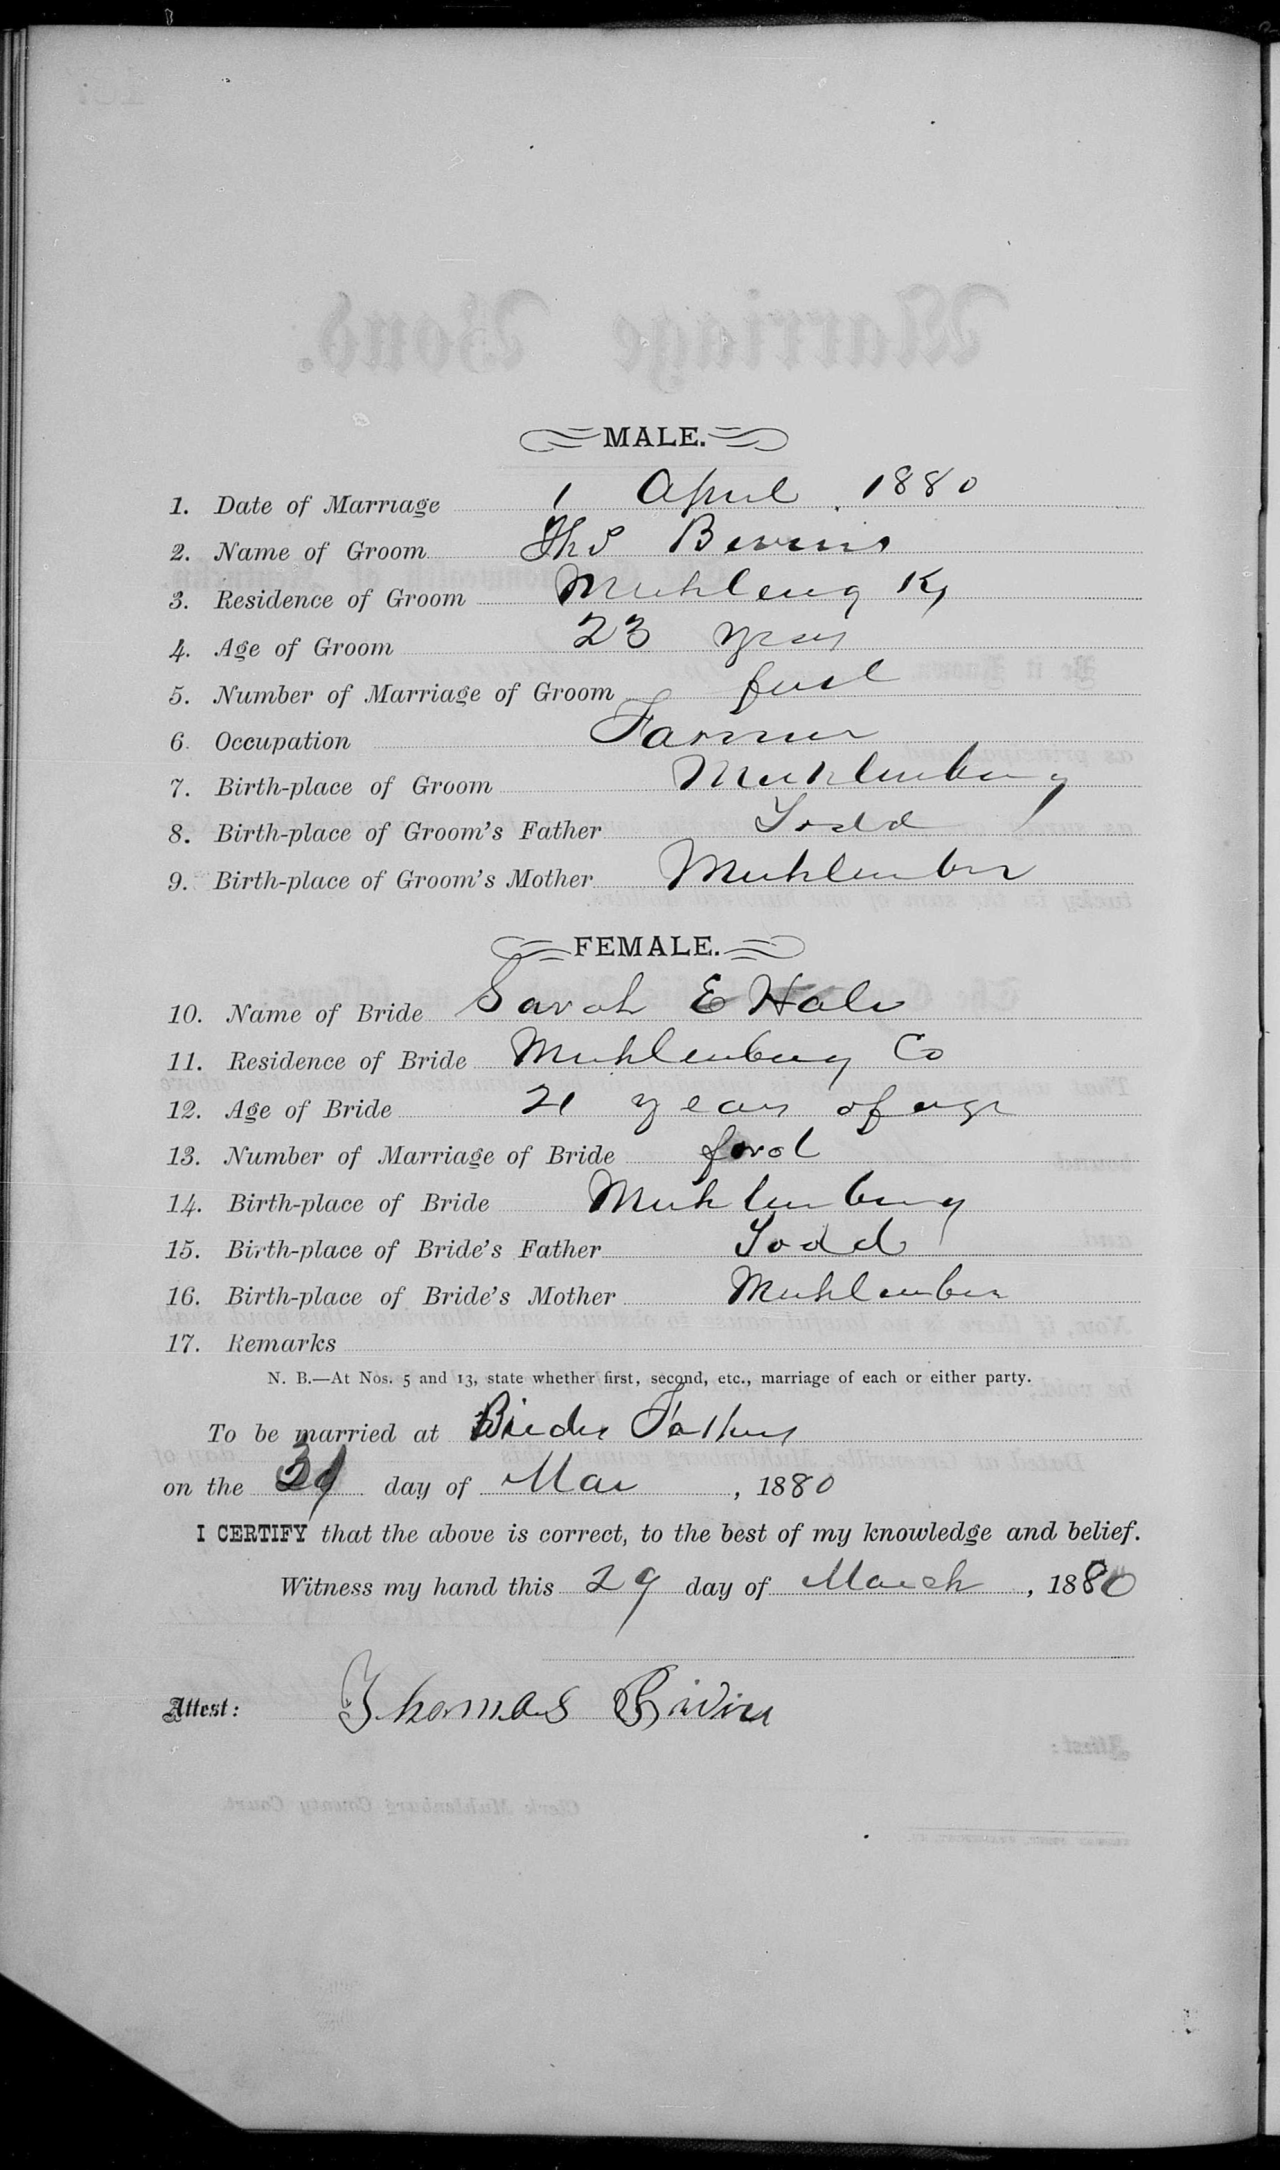 MALE.
1. Date of Marriage 1 April 1880
2. Name of Groom Thos Bivins
3. Residence of Groom Muhleng Ky
4. Age of Groom 23 years
5. Number of Marriage of Groom first
6. Occupation Farmer
7. Birth-place of Groom Muhlenberg
8. Birth-place of Groom's Father Todd
9. Birth-place of Groom's Mother Muhlenber
FEMALE.
10. Name of Bride Sarah E Hale
11. Residence of Bride Muhlenburg Co
12. Age of Bride 21 years of age
13. Number of Marriage of Bride first
14. Birth-place of Bride Muhlenburg
15. Birth-place of Bride's Father Todd
16. Birth-place of Bride's Mother Muhlenber
17. Remarks
N. B.—At Nos. 5 and 13, state whether first, second, etc., marriage of each or either party.
To be married at Brides Fathers
on the day of Mar, 1880
I CERTIFY that the above is correct, to the best of my knowledge and belief.
Witness my hand this 29 day of March, 1880
Attest: Thomas Bivins